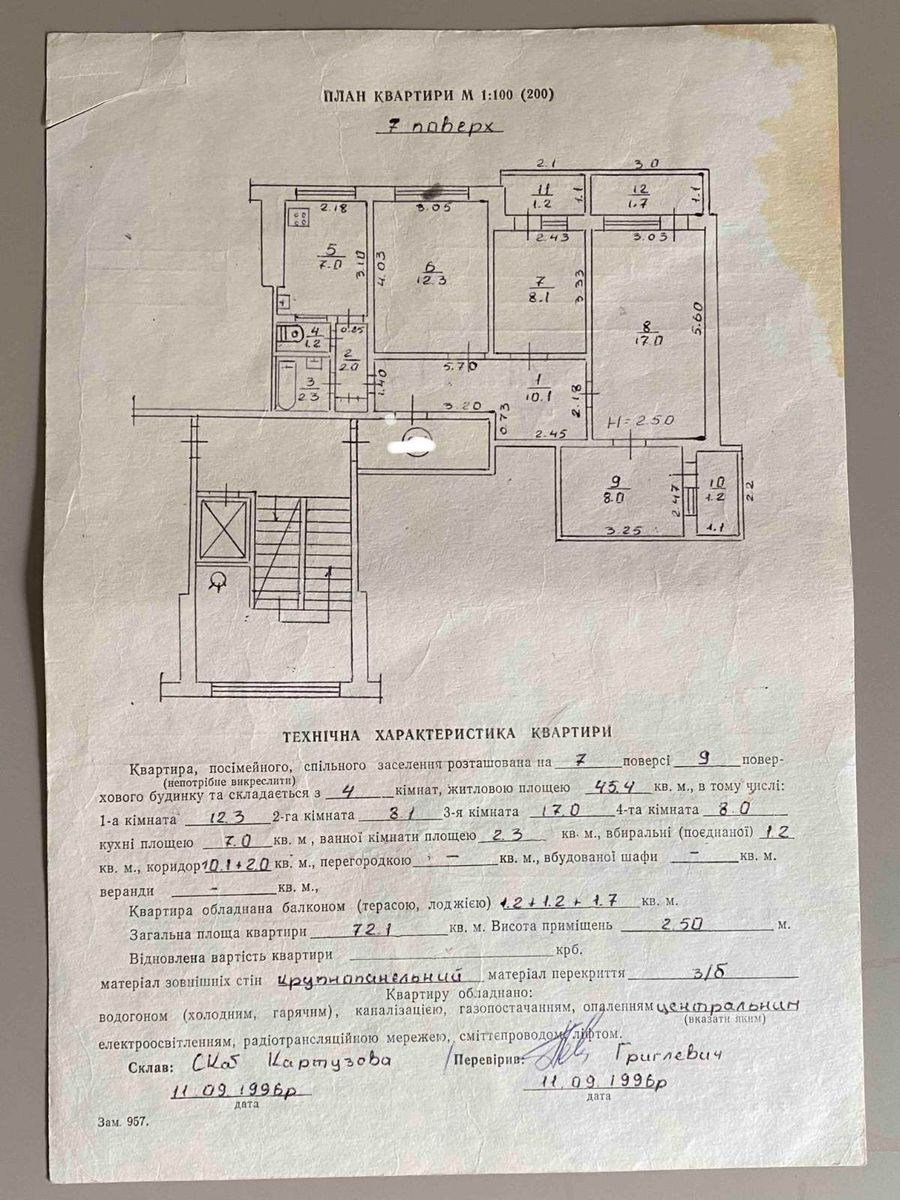 ПЛАН КВАРТИРИ М 1:100 (200)
7 поверх
2.1 3.0
11 12
1.2 1.1 1.7 1.1
2.18 3.05 2.43 3.03
5
7.0 3.10 4.03
6
12.3
7
8.1 3.33
8
17.0 5.60
4
1.2 0.85
2
2.0
3
2.3 1.40 5.70
1
10.1 2.18
3.20 0.73 2.45 H=2.50
9
8.0 2.47
10
1.2 2.2
3.25 1.1
ТЕХНІЧНА ХАРАКТЕРИСТИКА КВАРТИРИ
Квартира, посімейного, спільного заселення розташована на 7 поверсі 9 повер-
(непотрібне викреслити)
хового будинку та складається з 4 кімнат, житловою площею 45.4 кв. м., в тому числі:
1-а кімната 12.3 2-га кімната 8.1 3-я кімната 17.0 4-та кімната 8.0
кухні площею 7.0 кв. м , ванної кімнати площею 2.3 кв. м., вбиральні (поєднаної) 1.2
кв. м., коридор 10.1+2.0 кв. м., перегородкою – кв. м., вбудованої шафи – кв. м.
веранди – кв. м.,
Квартира обладнана балконом (терасою, лоджією) 1.2+1.2+1.7 кв. м.
Загальна площа квартири 72.1 кв. м. Висота приміщень 2.50 м.
Відновлена вартість квартири крб.
матеріал зовнішніх стін крупнопанельний матеріал перекриття з/б
Квартиру обладнано:
водогоном (холодним, гарячим), каналізацією, газопостачанням, опаленням центральним
(вказати яким)
електроосвітленням, радіотрансляційною мережею, сміттєпроводом, ліфтом.
Склав: Картузова Перевірив: Григлевич
11.09.1996р 11.09.1996р
дата дата
Зам. 957.